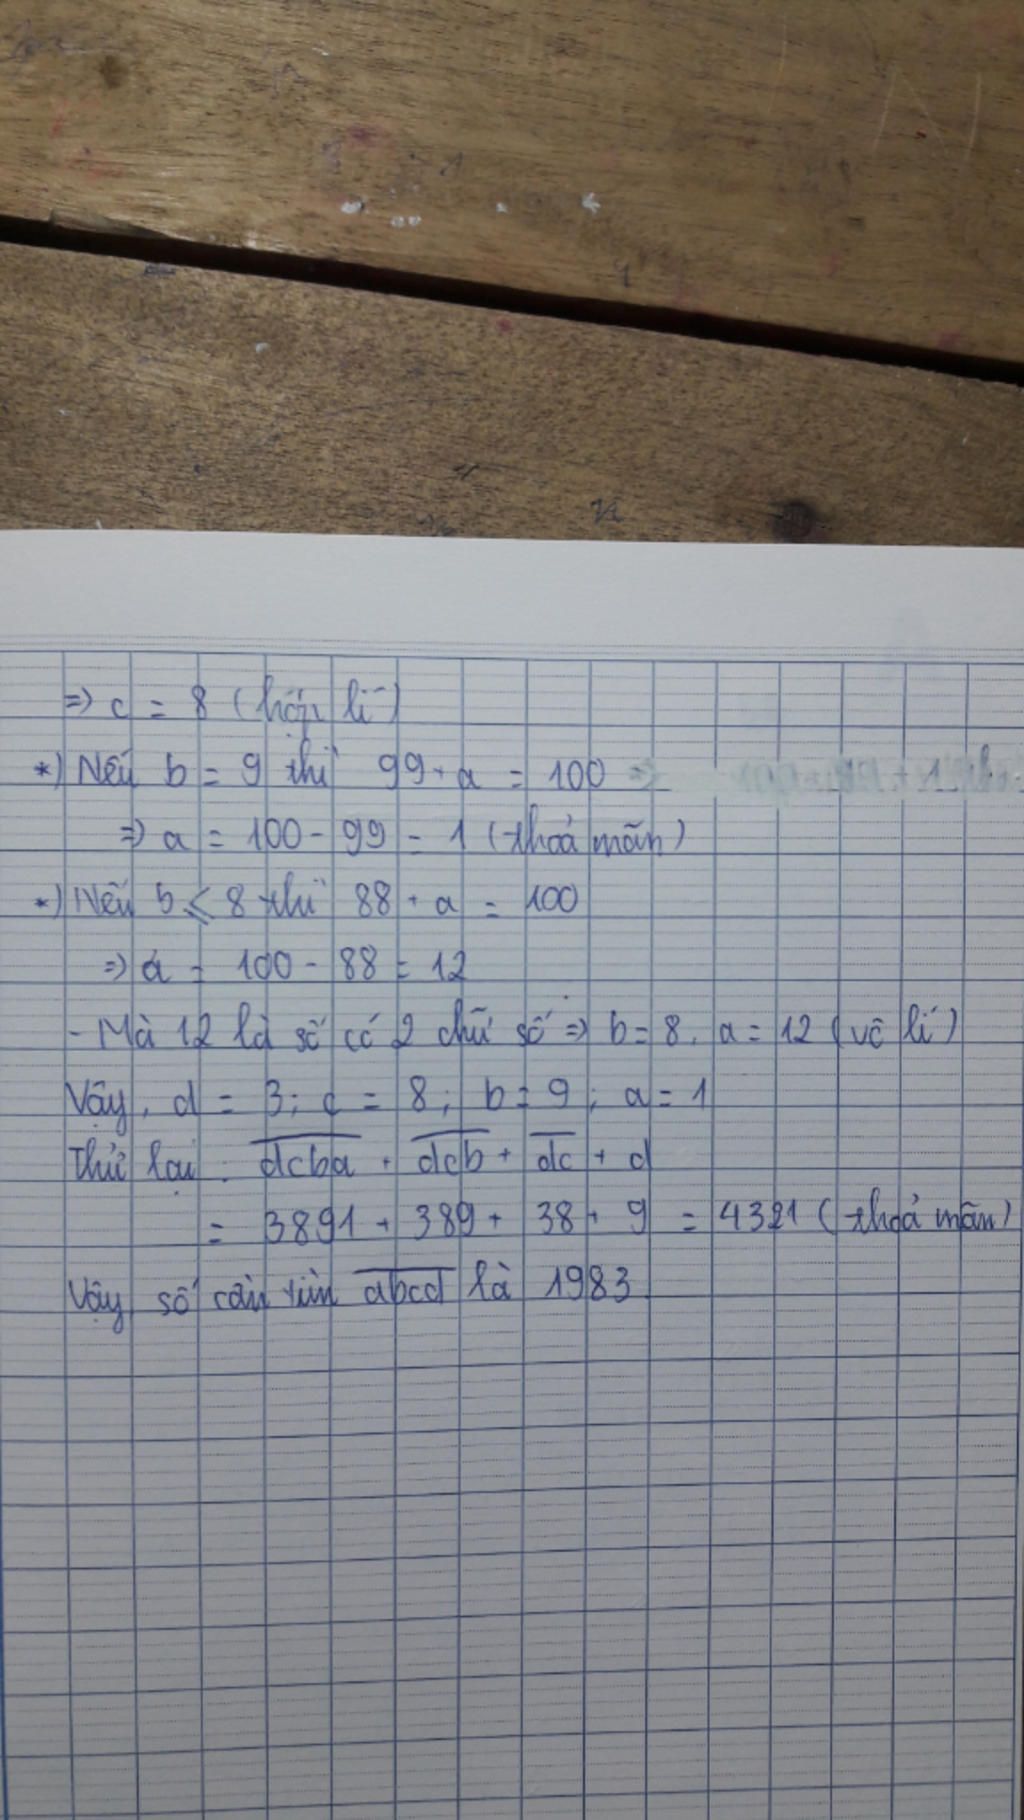 ⇒ c = 8 (hợp lí)
*) Nếu b = 9 thì 99 + a = 100
⇒ a = 100 - 99 = 1 (thoả mãn)
*) Nếu b ≤ 8 thì 88 + a = 100
⇒ a = 100 - 88 = 12
- Mà 12 là số có 2 chữ số ⇒ b = 8, a = 12 (vô lí)
Vậy, d = 3; c = 8; b = 9; a = 1
Thử lại: dcba + dcb + dc + d
= 3891 + 389 + 38 + 9 = 4321 (thoả mãn)
Vậy số cần tìm abcd là 1983